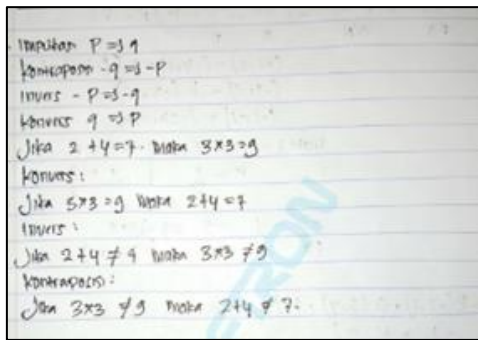 Implikasi P => q
Kontraposisi -q => -P
Invers -P => -q
Konvers q => P
Jika 2 + 4 = 7. Maka 3 x 3 = 9
Konvers :
Jika 3 x 3 = 9 Maka 2 + 4 = 7
Invers :
Jika 2 + 4 ≠ 7 Maka 3 x 3 ≠ 9
Kontraposisi :
Jika 3 x 3 ≠ 9 Maka 2 + 4 ≠ 7.